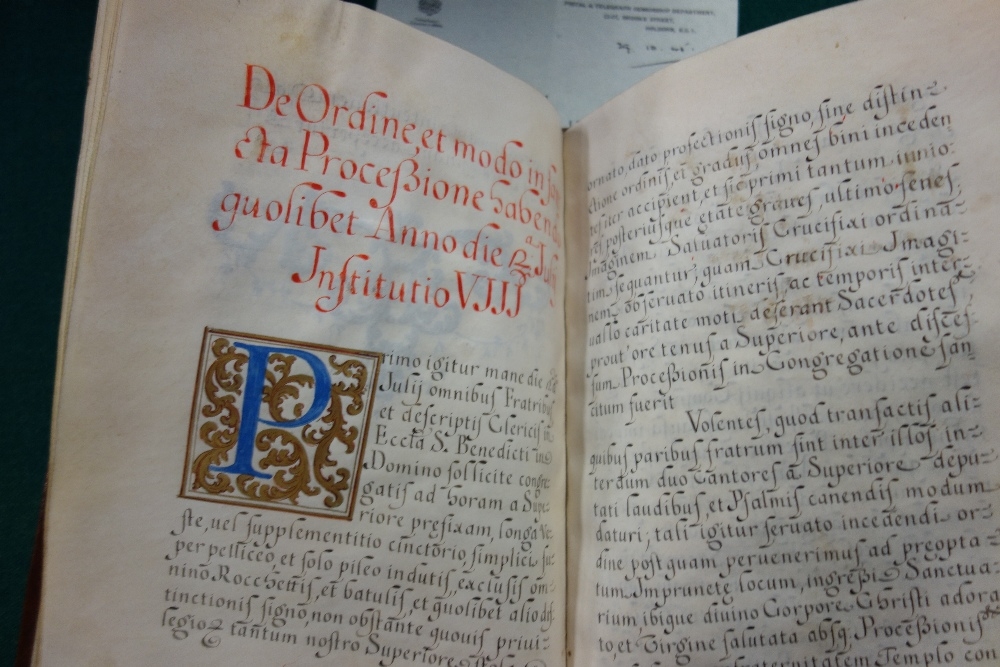 POSTAL & TELEGRAPH CENSORSHIP DEPARTMENT,
HOLBORN, E.C.1.
De Ordine, et modo in san
cta Proceßione habendo
quolibet Anno die 2ª Julij
Institutio VIII
Primo igitur mane die
Julij omnibus Fratribus
et descriptis Clericis in
Eccła S. Benedicti in
Domino sollicite congre
gatis ad horam a Supe-
riore prefixam, longa Ve-
ste, uel supplementitio cinctorio, simplici su-
per pelliceo, et solo pileo indutis, exclusis om-
nino Rocchettis, et batulis, et quolibet alio dis
tinctionis signo, non obstante quouis priui-
legio, tantum nostro Superiore
ornato, dato profectionis signo, sine distin-
ctione ordinis, et gradus omnes bini inceden
tes iter accipient, et sic primi tantum iunio-
res posteriusque etate graues, ultimo senes,
Imaginem Saluatoris Crucifixi ordina-
tim sequantur; quam Crucifixi Imagi-
nem, obseruato itineris, ac temporis inter-
uallo caritate moti deferant Sacerdotes,
prout ore tenus a Superiore, ante disces-
sum Proceßionis in Congregatione san
citum fuerit
Volentes, quod transactis ali-
quibus paribus fratrum sint inter illos in-
terdum duo Cantores a Superiore depu-
tati laudibus, et Psalmis canendis modum
daturi; tali igitur seruato incedendi or-
dine postquam peruenerimus ad preopta-
tum Imprunete locum, ingreßi Sanctua-
rium, ibique diuino Corpore Christi adora
to, et Virgine salutata absq. Proceßionis
Templo con